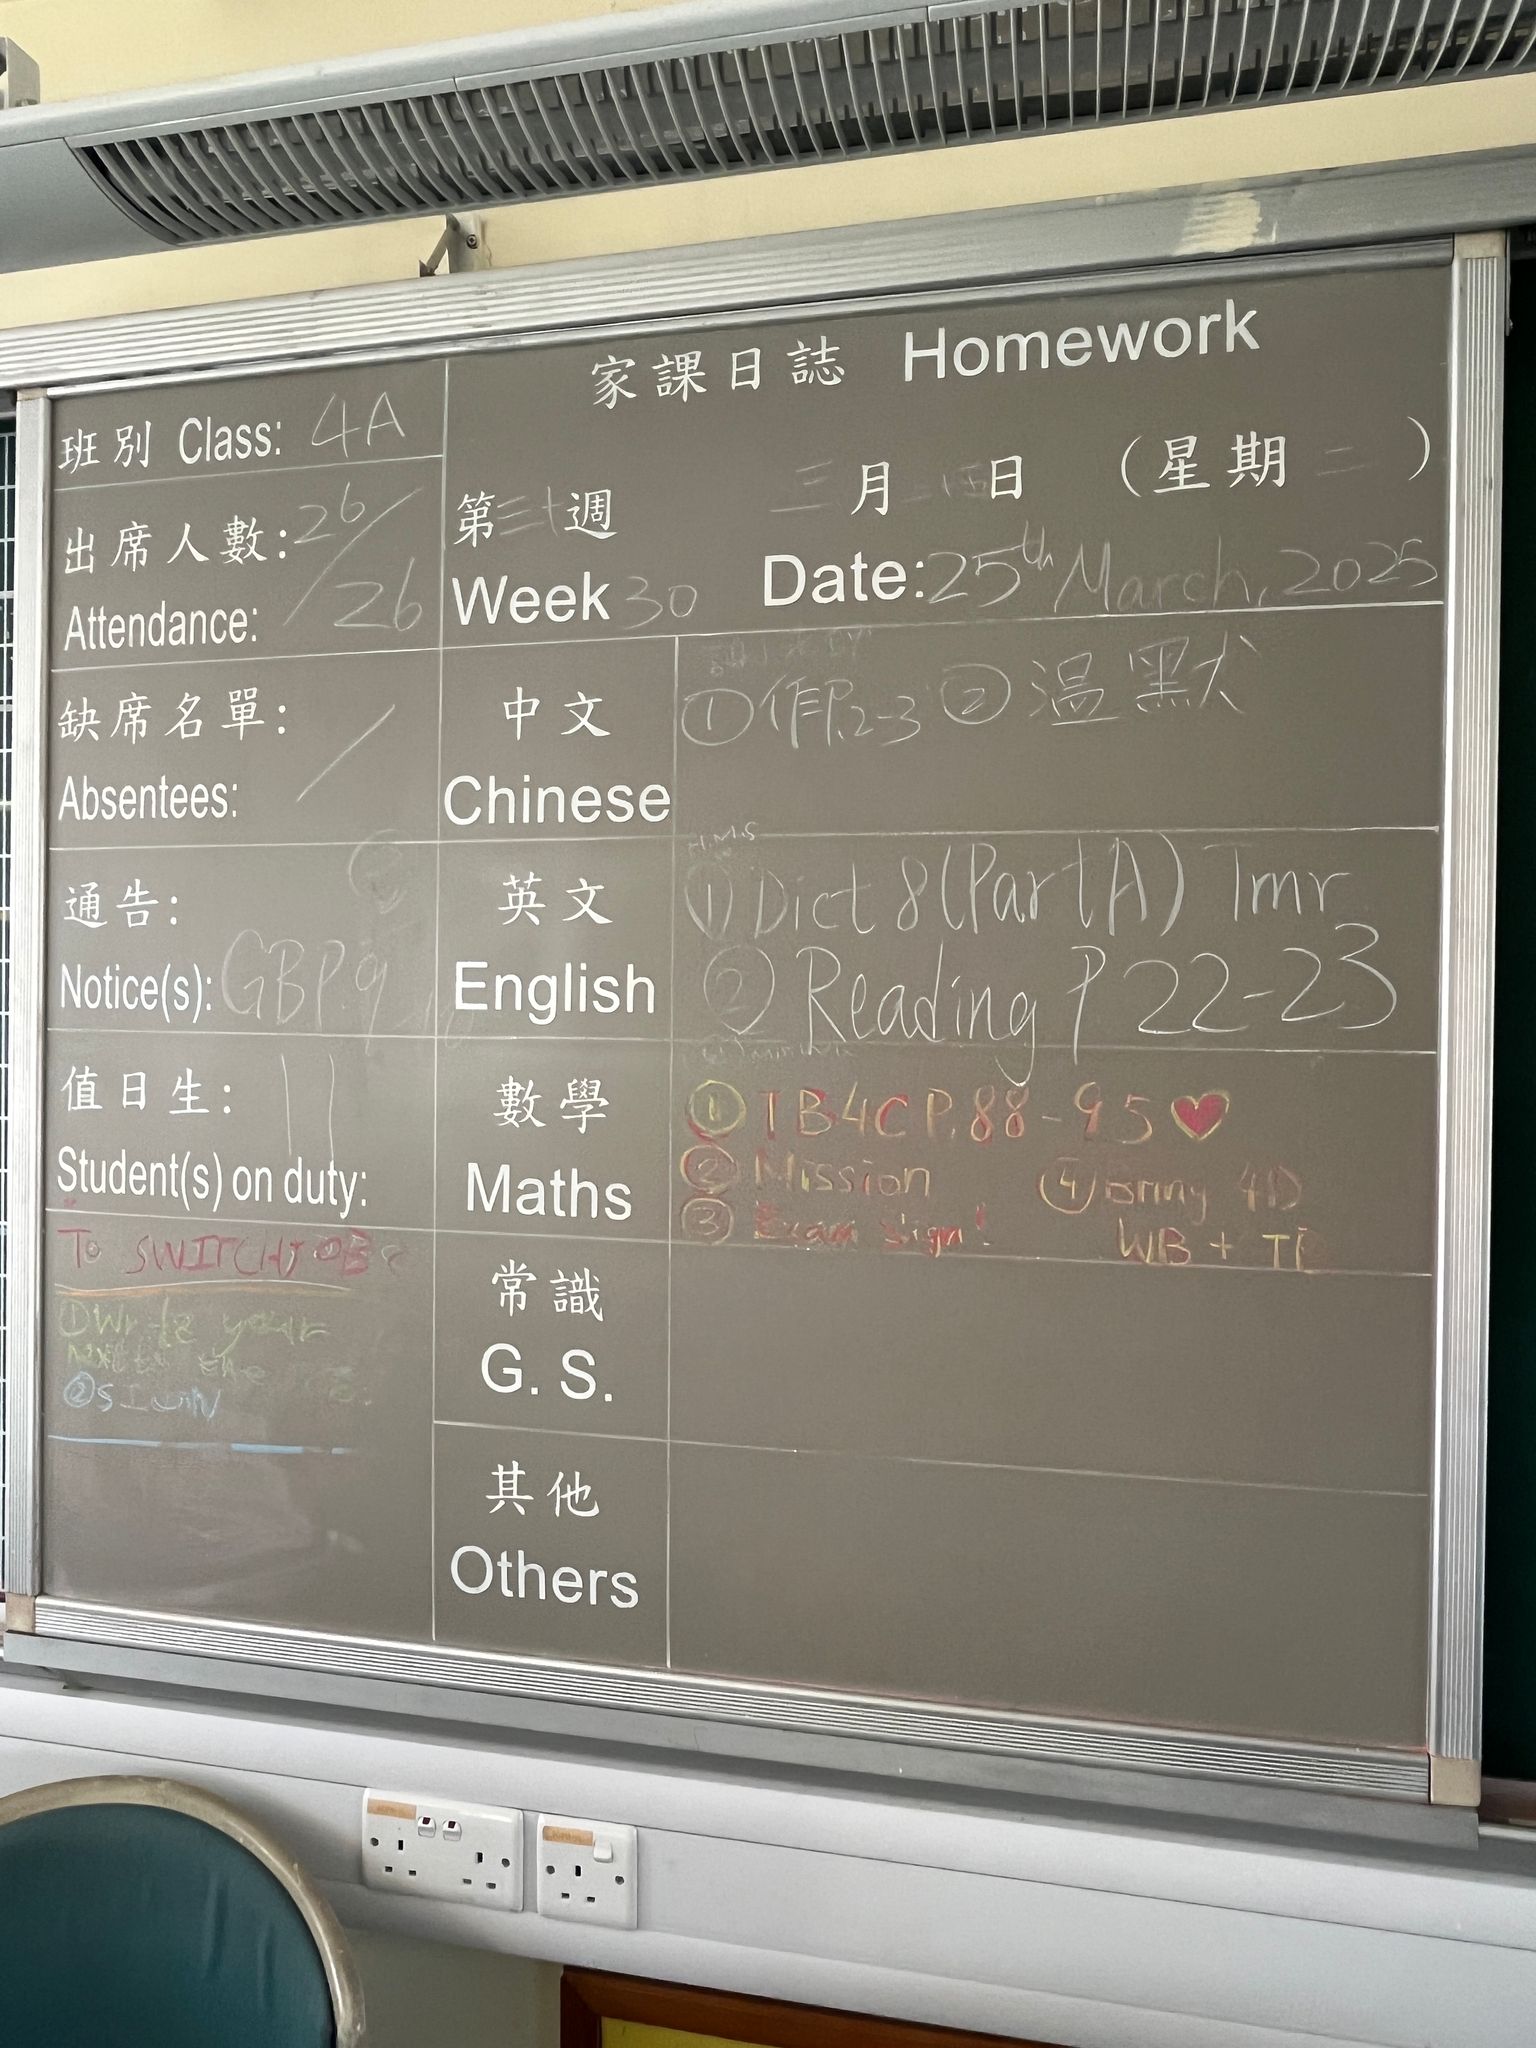 家課日誌 Homework
班別 Class: 4A
出席人數: 26/26
Attendance:
第三十週
Week 30
三月 日 (星期二)
Date: 25th March, 2025
缺席名單: /
Absentees:
通告:
Notice(s): GBP.9
值日生: 11
Student(s) on duty:
To SWITCH
① your
the
②
中文
Chinese
① 作P.2-3 ② 溫默
英文
English
① Dict 8 (Part A) Tmr
② Reading P 22-23
數學
Maths
① TB4C P.88-95 ♥
② Mission
③ Exam sign!
④ Bring 4D
WB + TB
常識
G. S.
其他
Others